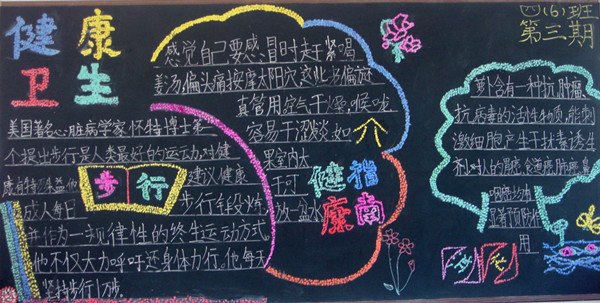 健康
卫生
四(6)班
第三期
美国著名心脏病学家怀特博士第一
个提出步行是人类最好的运动,对健
康有特殊益他
建议健康
成人每日
步行锻炼
并作为一规律性的终生运动方式。
他不仅大力呼吁还身体力行,他每天
坚持步行1万步
步行
感觉自己要感冒时赶紧喝
姜汤偏头痛按摩太阳穴
真管用空气干燥,喉咙
容易干涩
如
果室内太
干可
放一盆水
健康指南
萝卜含有一种抗肿瘤、
抗病毒的活性物质,能刺
激细胞产生干扰素诱生
剂,对人的胃癌、食道癌、肺癌、鼻
咽癌均有
显著预防作
用